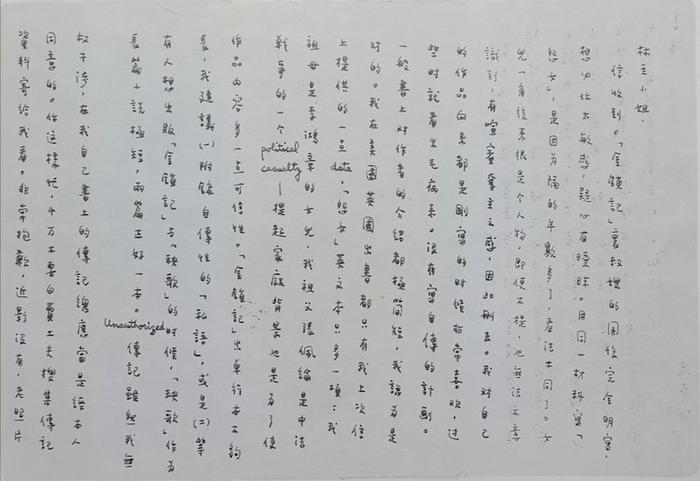 林主小姐，
信收到。「金鎖記」裏叔嫂的關係完全明寫，
想功仕太敏感，疑心有曖昧。用同一材料寫「
怨女」，是因為隔的年數多了，看法不同了。女
兒一角後來很是個人物，即使不提，也無法不意
識到，有喧賓奪主之感，因此刪去。我對自己
的作品向來都是剛寫的時候非常喜歡，過
些時就看出毛病來。沒有寫自傳的計劃。
一般書上對作者的介紹都極簡短，我認為是
對的。我在美國英國出書都只有我上次信
上提供的一點data，「怨女」英文本只多一項：我
祖母是李鴻章的女兒，我祖父張佩綸是中法
戰爭的一個political casualty—提起家庭背景也是為了使
作品內容多一點可信性。「金鎖記」出單行本不夠
長，我建議(一)附錄自傳性的「私語」，或是(二)等
有人想出版「金鎖記」与「秧歌」的时候，「秧歌」作為
長篇小說極短，兩篇正好一本。Unauthorized傳記雖然我無
权干涉，在我自己書上的傳記總應當是經本人
同意的。你這樣忙，千万不要白費工夫搜集傳記
資料寄給我看。非常抱歉，近影沒有，老照片